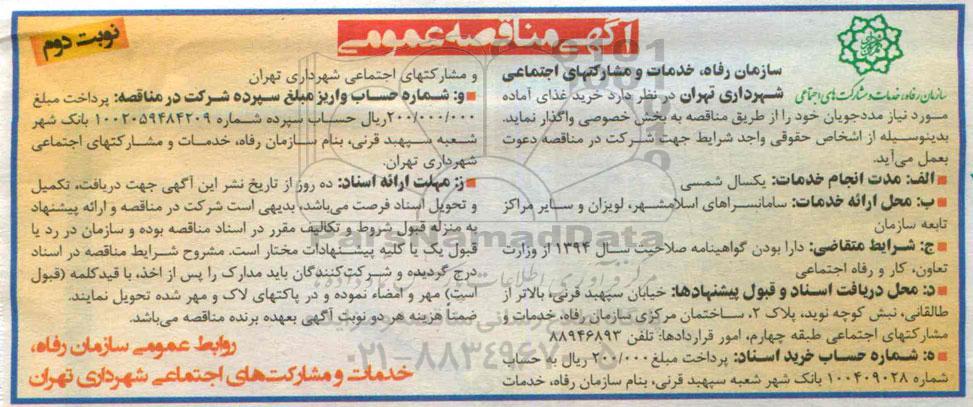 آگهی مناقصه عمومی
نوبت دوم
سازمان رفاه، خدمات و مشارکتهای اجتماعی
سازمان رفاه، خدمات و مشارکتهای اجتماعی
شهرداری تهران در نظر دارد خرید غذای آماده
مورد نیاز مددجویان خود را از طریق مناقصه به بخش خصوصی واگذار نماید.
بدینوسیله از اشخاص حقوقی واجد شرایط جهت شرکت در مناقصه دعوت
بعمل می‌آید.
الف: مدت انجام خدمات: یکسال شمسی
ب: محل ارائه خدمات: سامانسراهای اسلامشهر، لویزان و سایر مراکز
تابعه سازمان
ج: شرایط متقاضی: دارا بودن گواهینامه صلاحیت سال ۱۳۹۴ از وزارت
تعاون، کار و رفاه اجتماعی
د: محل دریافت اسناد و قبول پیشنهادها: خیابان سپهبد قرنی، بالاتر از
طالقانی، نبش کوچه نوید، پلاک ۲، ساختمان مرکزی سازمان رفاه، خدمات و
مشارکتهای اجتماعی طبقه چهارم، امور قراردادها: تلفن ۸۸۹۴۶۸۹۳
ه: شماره حساب خرید اسناد: پرداخت مبلغ ۲۰۰/۰۰۰ ریال به حساب
شماره ۱۰۰۴۰۹۰۲۸ بانک شهر شعبه سپهبد قرنی، بنام سازمان رفاه، خدمات
و مشارکتهای اجتماعی شهرداری تهران
و: شماره حساب واریز مبلغ سپرده شرکت در مناقصه: پرداخت مبلغ
۲۰۰/۰۰۰/۰۰۰ریال حساب سپرده شماره ۱۰۰۲۰۵۹۴۸۴۲۰۹ بانک شهر
شعبه سپهبد قرنی، بنام سازمان رفاه، خدمات و مشارکتهای اجتماعی
شهرداری تهران.
ز: مهلت ارائه اسناد: ده روز از تاریخ نشر این آگهی جهت دریافت، تکمیل
و تحویل اسناد فرصت می‌باشد، بدیهی است شرکت در مناقصه و ارائه پیشنهاد
به منزله قبول شروط و تکالیف مقرر در اسناد مناقصه بوده و سازمان در رد یا
قبول یک یا کلیه پیشنهادات مختار است. مشروح شرایط مناقصه در اسناد
درج گردیده و شرکت‌کنندگان باید مدارک را پس از اخذ، با قیدکلمه (قبول
است) مهر و امضاء نموده و در پاکتهای لاک و مهر شده تحویل نمایند.
ضمناً هزینه هر دو نوبت آگهی بعهده برنده مناقصه می‌باشد.
روابط عمومی سازمان رفاه،
خدمات و مشارکت‌های اجتماعی شهرداری تهران
ParsNamadData
۰۲۱-۸۸۳۴۹۶۷۰